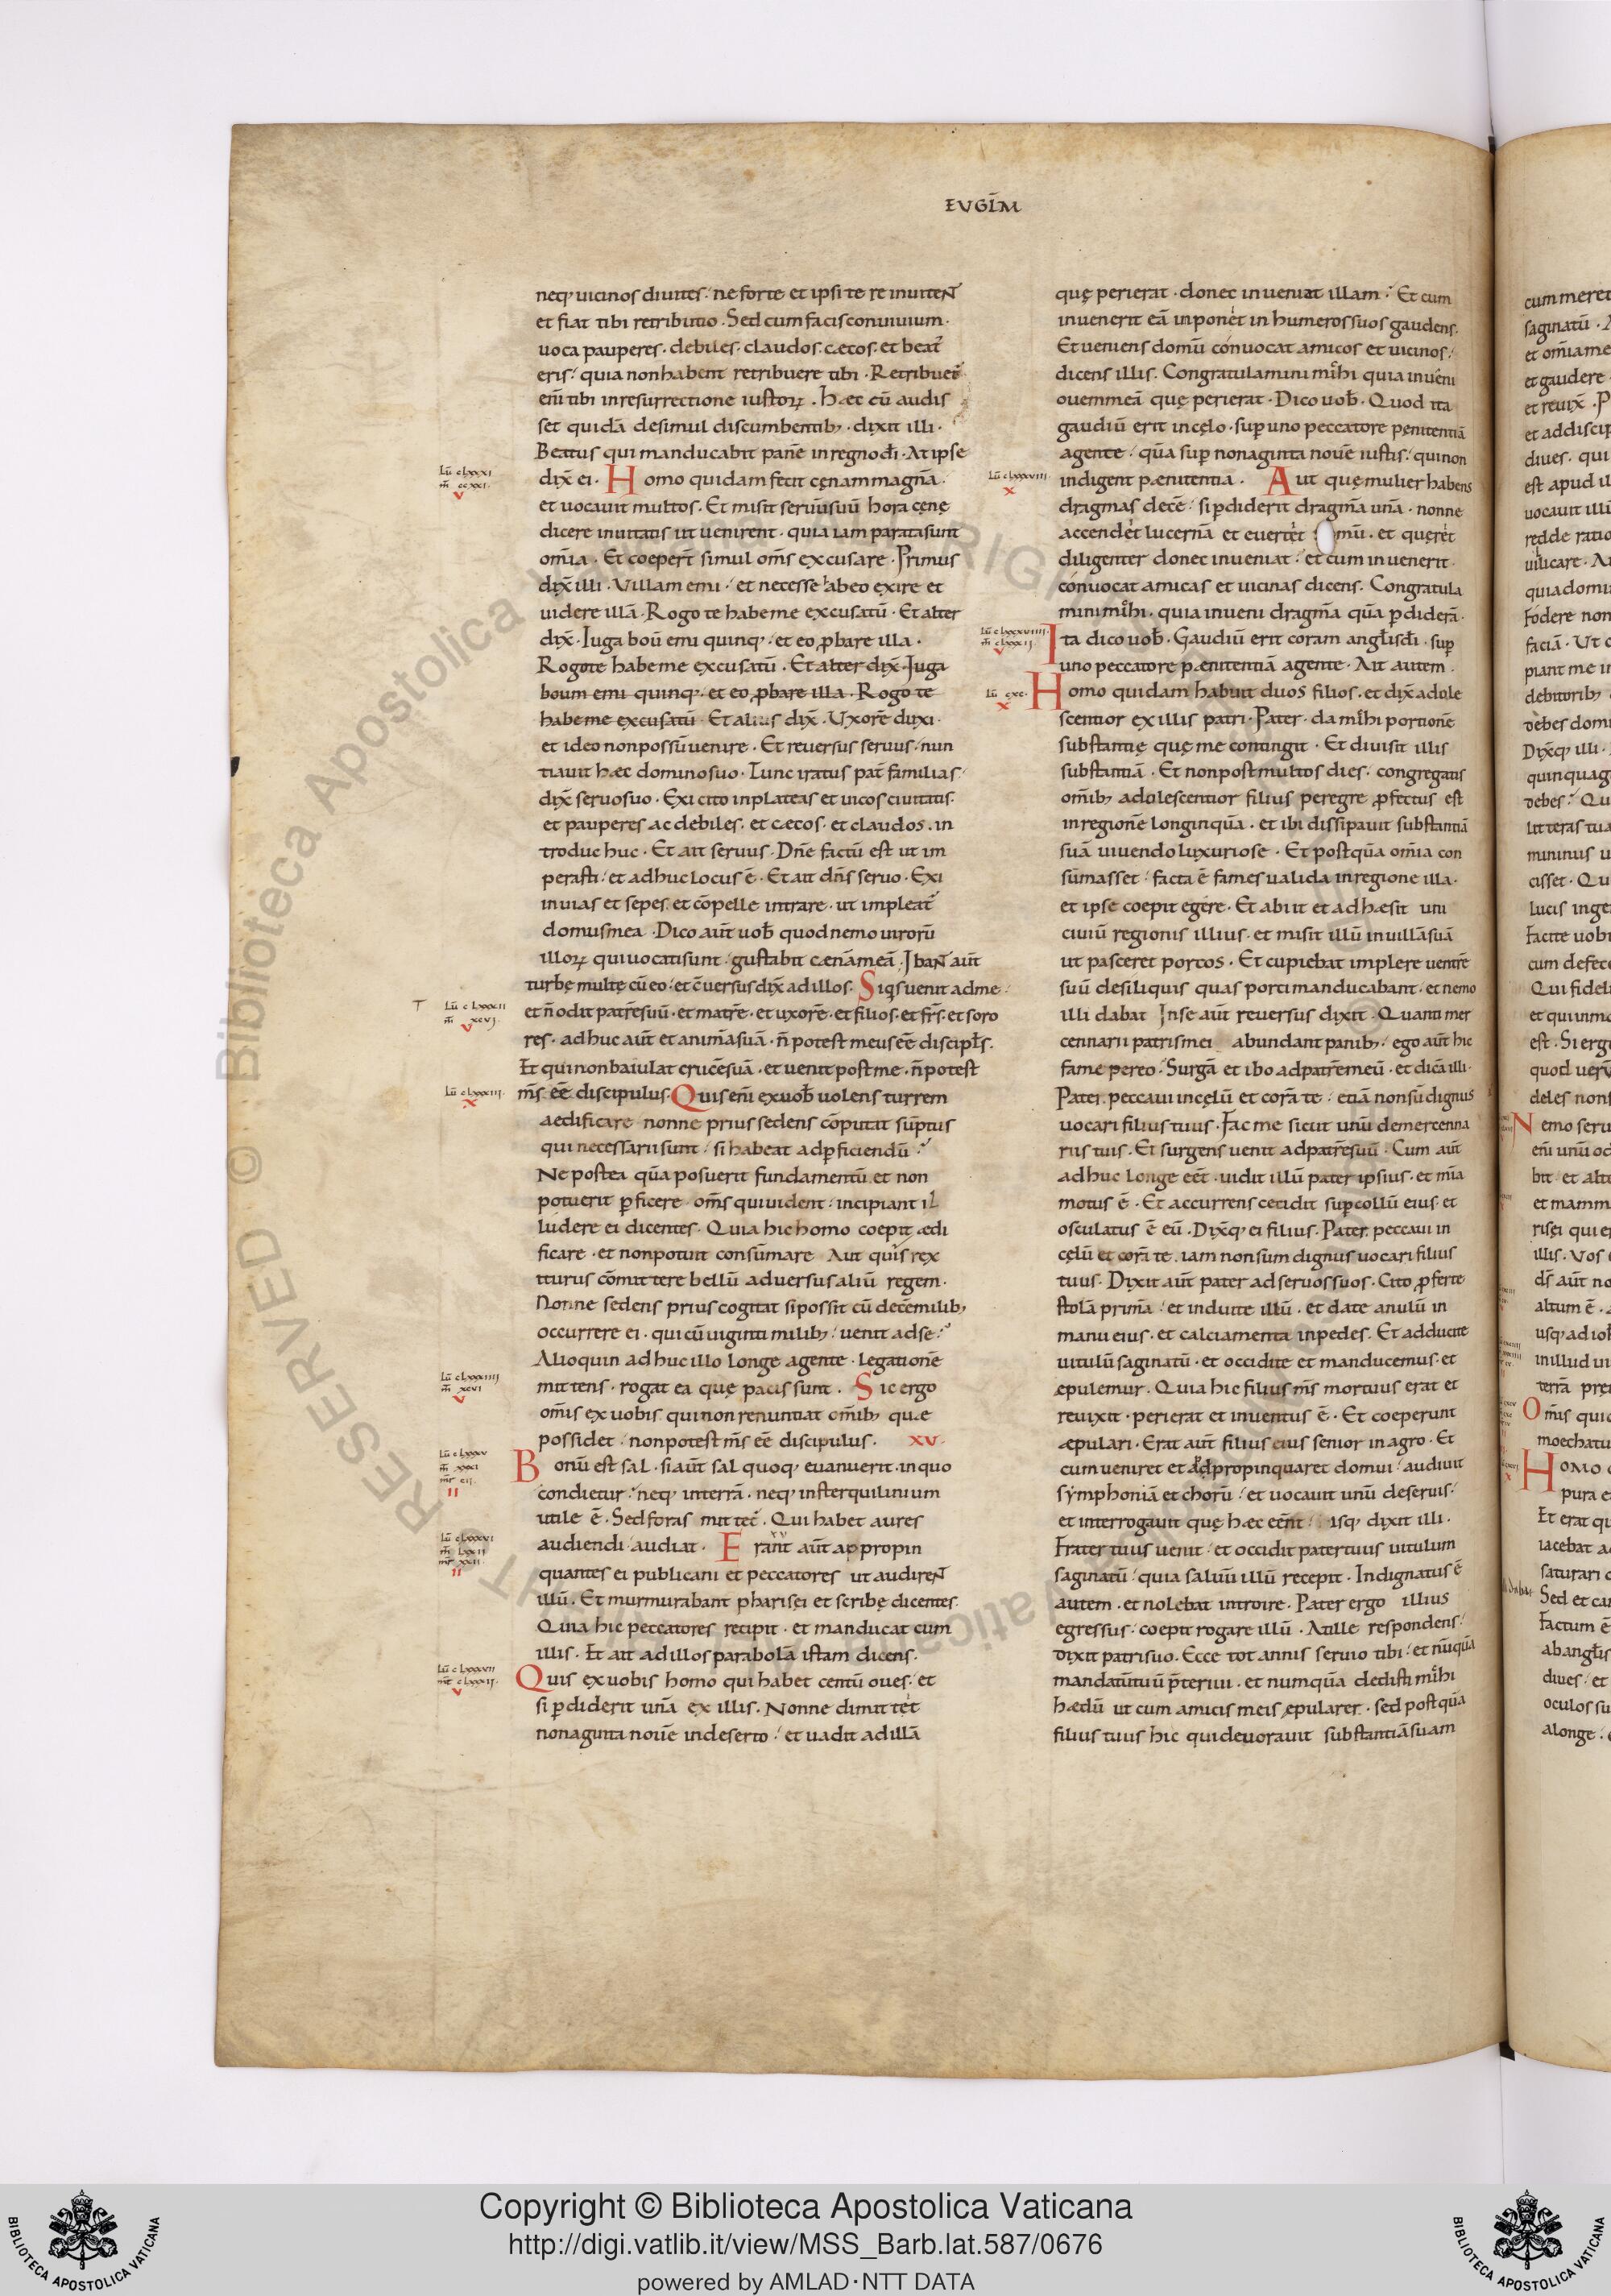 EVGĪM
neq; uicinos diuites. ne forte et ipsi te re inuiteÑ
et fiat tibi retributio. Sed cum facis conuiuium.
uoca pauperes. debiles. claudos. cæcos. et beat̄
eris. quia non habent retribuere tibi. Retribuet̄
eni̅ tibi in resurrectione iustoꝝ. Hæc cū audis
set quidā de simul discumbentib; dixit illi.
Beatus qui manducabit panē in regno dī. At ipse
Lū clxxxi
dix̄ ei. Homo quidam fecit cęnam magnā.
v
et uocauit multos. Et misit seruū suū hora cęnę
dicere inuitatis ut uenirent. quia iam parata sunt
omīa. Et coeper̄t simul om̄s excusare. Primus
dix̄ illi. Villam emi. et necesse habeo exire et
uidere illā. Rogo te habe me excusatū. Et alter
dix̄. Iuga boū emi quinq; et eo ꝓbare illa.
Rogo te habe me excusatū. Et alter dix̄. Iuga
boum emi quinq; et eo ꝓbare illa. Rogo te
habe me excusatū. Et alius dix̄. Vxorē duxi.
et ideo non possū uenire. Et reuersus seruus. nun
tiauit hæc domino suo. Tunc iratus pat̄ familias
dix̄ seruo suo. Exi cito in plateas et uicos ciuitatis.
et pauperes ac debiles. et cæcos. et claudos. in
troduc huc. Et ait seruus. Dn̄e factū est ut im
perasti. et adhuc locus ē. Et ait dn̄s seruo. Exi
in uias et sepes. et cōpelle intrare. ut impleat̄
domus mea. Dico aūt uob̄ quod nemo uiroꝝū
illoꝝ qui uocati sunt. gustabit cænā meā. IbaÑ aūt
turbę multę cū eo. et c̄uersus dix̄ ad illos. Siqs uenit ad me.
T Lū clxxxii
m̄ xcvi
v
et n̄ odit patrē suū. et matrē. et uxorē. et filios. et fr̄s. et soro
res. adhuc aūt et animā suā. n̄ potest meus eē discipl̄s.
Et qui non baiulat crucē suā. et uenit post me. n̄ potest
Lū clxxxiii.
x
m̄s eē discipulus. Quis eni̅ ex uob̄ uolens turrem
aedificare nonne prius sedens cōputat sūptus
qui necessarii sunt. si habeat ad ꝑficiendū?
Ne postea quā posuerit fundamentū. et non
potuerit ꝑficere om̄s qui uident. incipiant il
ludere ei dicentes. Quia hic homo coepit ædi
ficare. et non potuit consūmare Aut quis rex
iturus cōmittere bellū aduersus aliū regem.
Nonne sedens prius cogitat si possit cū decē milib;
occurrere ei. qui cū uiginti milib; uenit ad se?
Alioquin adhuc illo longe agente. legationē
Lū clxxxiiii
m̄ xcvi
v
mittens. rogat ea quę pacis sunt. Sic ergo
om̄is ex uobis qui non renuntiat om̄ib; quæ
possidet. non potest m̄s eē discipulus. xv.
Lū clxxxv
m̄ xxxi
mr̄ cii.
ii
Bonū est sal. si aūt sal quoq; euanuerit. in quo
condietur. neq; in terrā. neq; in sterquilinium
utile ē. Sed foras mittet̄. Qui habet aures
Lū clxxxvi
mr̄ xxii.
ii
audiendi audiat. Erant aūt appropin
quantes ei publicani et peccatores ut audireÑ
illū. Et murmurabant pharisęi et scribę dicentes.
Quia hic peccatores recipit. et manducat cum
illis. Et ait ad illos parabolā istam dicens.
Lū clxxxvii
v
Quis ex uobis homo qui habet centū oues. et
si ꝑdiderit unā ex illis. Nonne dimittet
nonaginta nouē in deserto. et uadit ad illā
quę perierat. donec inueniat illam? Et cum
inuenerit eā inponet in humeros suos gaudens.
Et ueniens domū conuocat amicos et uicinos.
dicens illis. Congratulamini mihi quia inueni
ouem meā quę perierat. Dico uob̄. Quod ita
gaudiū erit in cęlo. sup̄ uno peccatore penitentiā
agente. quā sup̄ nonaginta nouē iustis. qui non
Lū clxxxviii
x
indigent pænitentiā. Aut quę mulier habens
dragmas decē. si ꝑdiderit dragmā unā. nonne
accendet lucernā et euertet  mū. et queret
diligenter donec inueniat. et cum inuenerit.
conuocat amicas et uicinas dicens. Congratula
mini mihi. quia inueni dragmā quā ꝑdiderā.
Lū clxxxviiii.
v
Ita dico uob̄. Gaudiū erit coram angl̄is dī. sup̄
uno peccatore pænitentiā agente. Ait autem.
Lū cxc.
x
Homo quidam habuit duos filios. et dix̄ adole
scentior ex illis patri. Pater. da mihi portionē
substantię quę me contingit. Et diuisit illis
substantiā. Et non post multos dies. congregatis
om̄ib; adulescentior filius peregre ꝓfectus est
in regionē longinquā. et ibi dissipauit substantiā
suā uiuendo luxuriose. Et postquā om̄ia con
sūmasset. facta ē fames ualida in regione illa.
et ipse coepit egere. Et abiit et adhæsit uni
ciuiū regionis illius. et misit illū in uillā suā
ut pasceret porcos. Et cupiebat implere uentrē
suū de siliquis quas porci manducabant. et nemo
illi dabat. In se aūt reuersus dixit. Quanti mer
cennarii patris mei abundant panib; ego aūt hic
fame pereo. Surgā et ibo ad patrē meū. et dicā illi.
Pater. peccaui in cęlū et corā te. etiā non sū dignus
uocari filius tuus. Fac me sicut unū de mercenna
riis tuis. Et surgens uenit ad patrē suū. Cum aūt
adhuc longe eēt. uidit illū pater ipsius. et mīa
motus ē. Et accurrens cecidit sup̄ collū eius. et
osculatus ē eū. Dix̄q; ei filius. Pater. peccaui in
cęlū et corā te. iam non sum dignus uocari filius
tuus. Dixit aūt pater ad seruos suos. Cito ꝓferte
stolā primā. et induite illū. et date anulū in
manu eius. et calciamenta in pedes. Et adducite
uitulū saginatū. et occidite et manducemus. et
epulemur. Quia hic filius m̄s mortuus erat et
reuixit. perierat et inuentus ē. Et coeperunt
æpulari. Erat aūt filius eius senior in agro. Et
cum ueniret et adpropinquaret domui. audiuit
symphoniā et chorū. et uocauit unū de seruis.
et interrogauit quę hæc eēnt. isq; dixit illi.
Frater tuus uenit. et occidit pater tuus uitulum
saginatū. quia saluū illū recepit. Indignatus ē
autem. et nolebat introire. Pater ergo illius
egressus. coepit rogare illū. At ille respondens.
dixit patri suo. Ecce tot annis seruio tibi. et nūquā
mandatū tuū p̄terii. et numquā dedisti mihi
hædū ut cum amicis meis ępularer. sed postquā
filius tuus hic qui deuorauit substantiā suam
Copyright © Biblioteca Apostolica Vaticana
http://digi.vatlib.it/view/MSS_Barb.lat.587/0676
powered by AMLAD·NTT DATA
BIBLIOTECA APOSTOLICA VATICANA
BIBLIOTECA APOSTOLICA VATICANA